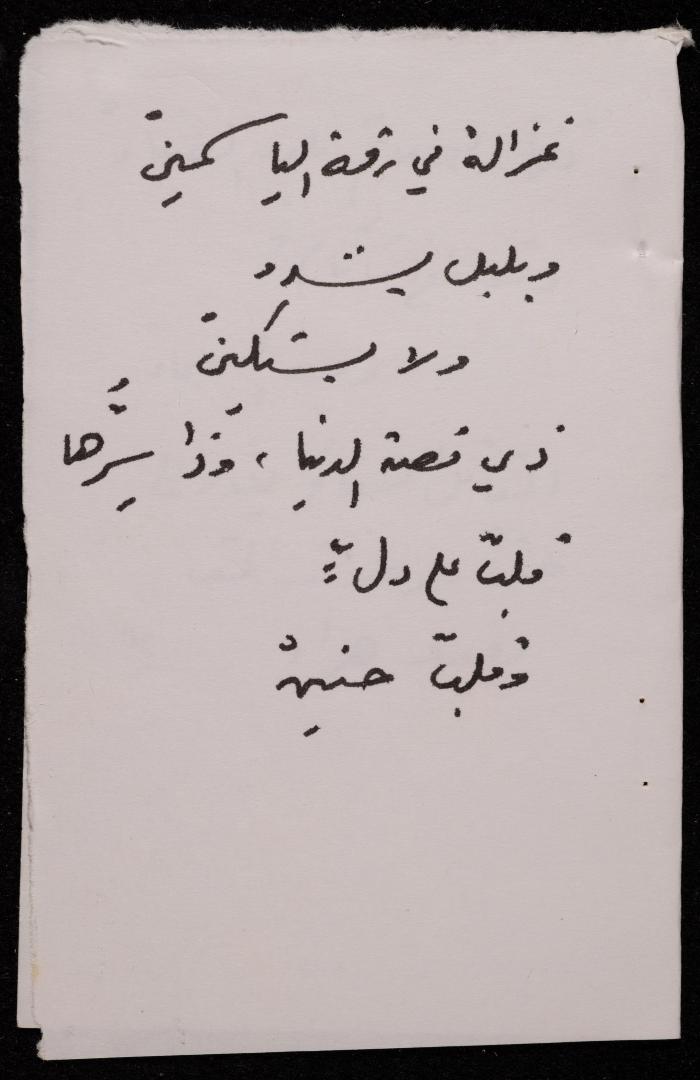 غزالة في رقة الياسمين
وبلبل يشدو
ولا يستكين
ذي قصة الدنيا ، وذا سِرُّها
قلبٌ علـ دلٍّ
وقلبٌ حنين